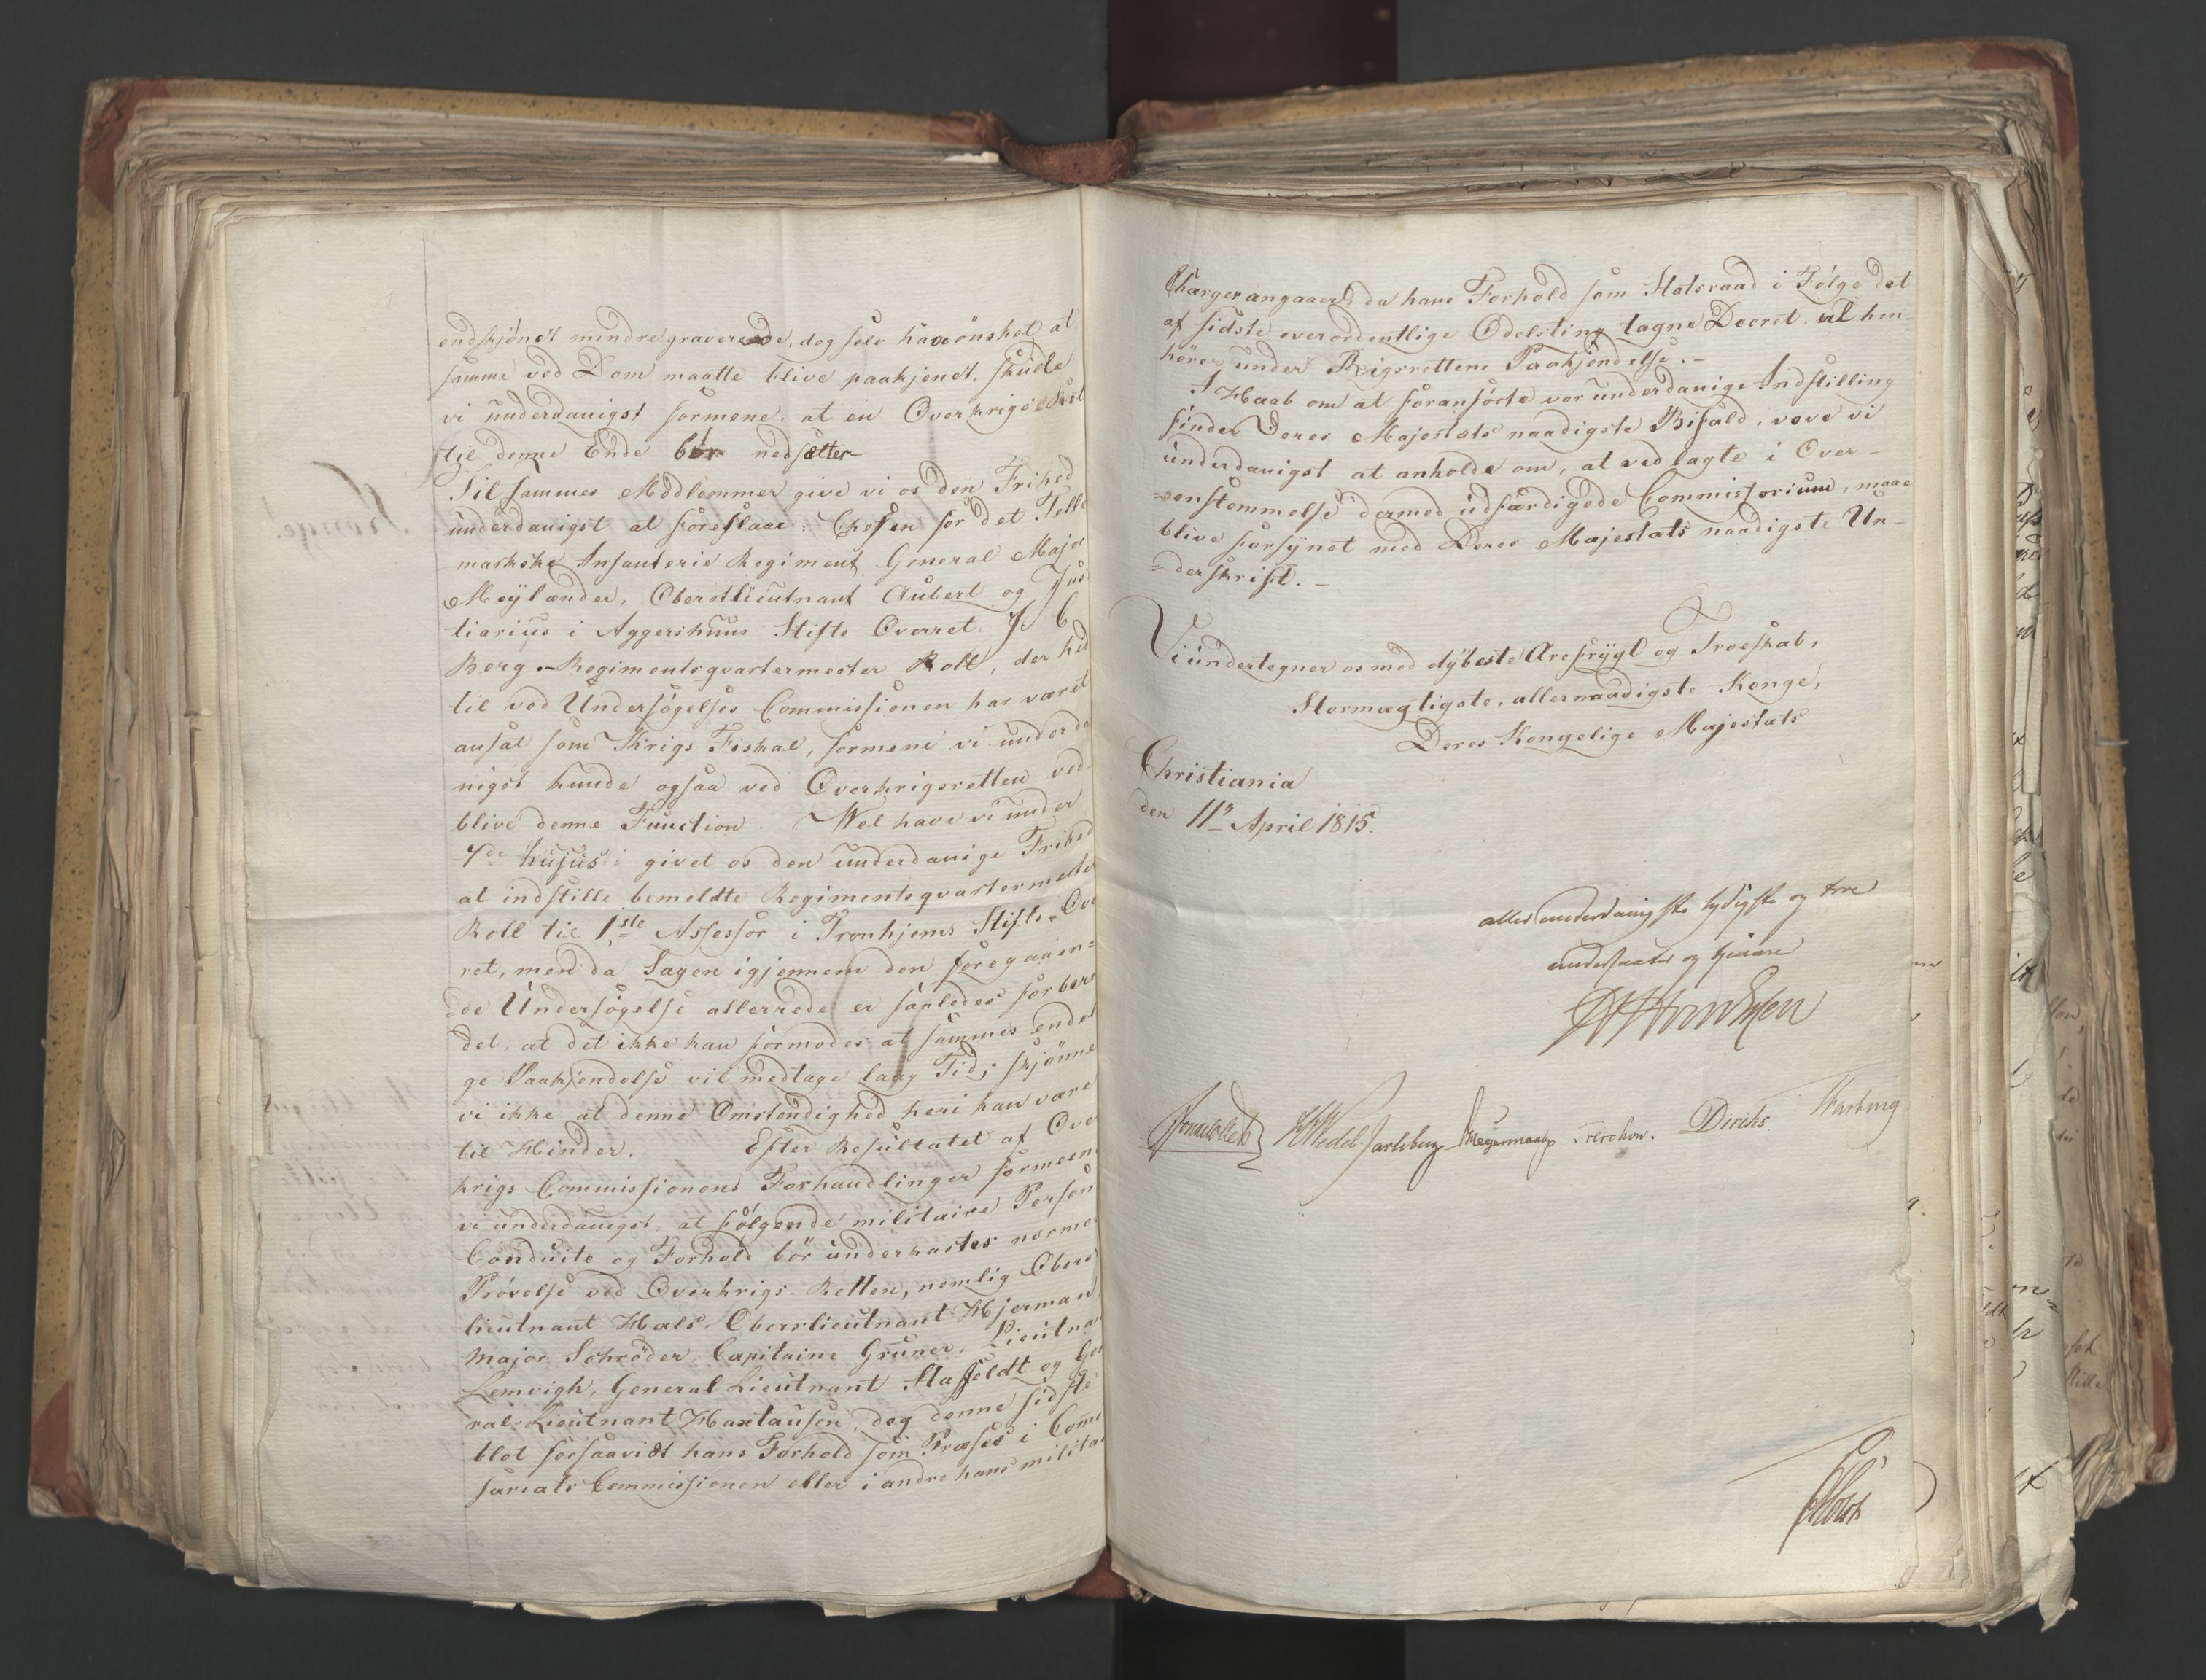 endskjönt mindre graverede, dog selv have önsket at
samme ved Dom maatte blive paakjendt, skulde
vi underdanigst formene, at en Overkrigs Ret
til denne Ende bör nedsættes
Til sammes Medlemmer give vi os den Frihed
underdanigst at foreslaae: Chefen for det Telle
markske Infanterie Regiment General Major
Meÿlænder, Oberstlieutnant Aubert og Jus
tiarius i Aggershuus Stifts Overret J. C
Berg. – Regimentsqvartermester Roll, der hid
til ved Undersögelses Commissionen har været
ansat som Krigs Fiskal, formene vi underda
nigst kunde ogsaa ved Overkrigsretten ved
blive denne Function. Vel have vi under
7de hujus givet os den underdanige Frihed
at indstille bemeldte Regimentsqvartermester
Roll til 1ste Assessor i Tronhjems Stifts Over
ret, men da Sagen igjennem den foregaaen=
de Undersögelse allerrede er saaledes forbere
det, at det ikke kan formodes at sammes endeli
ge Paakjendelse vil medtage lang Tid, skjönne
vi ikke at denne Omstendighed heri kan være
til Hinder. Efter Resultatet af Over
krigs Commissionens Forhandlinger formeene
vi underdanigst, at fölgende militaire Personers
Conduite og Forhold bör underkastes nærmere
Prövelse ved Overkrigs-Retten, nemlig Oberst
lieutnant Hals, Oberstlieutnant Hjerman
Major Schröder, Capitaine Grüner, Lieutnant
Lemvigh, General Lieutnant Staffeldt og Gene
ral-Lieutnant Haxtausen, dog denne sidste
blot forsaavidt hans Forhold som Præses i Commis
sariats Commissionen eller i andre hans militaire
Charger angaaer, da hans Forhold som Statsraad i Fölge det
af sidste overordentlige Odelsting tagne Decret, vil hen-
höre under Rigsrettens Paakjendelse. –
I Haab om at foranförte vor underdanige Indstilling
finder Deres Majestæts naadigste Bifald, vove vi
underdanigst at anholde om, at vedlagte i Over-
=eenstemmelse dermed udfærdigede Commissorium, maae
blive forsÿnet med Deres Majestæts naadigste Un-
=derskrift. –
Vi undertegner os med dÿbeste Ærefrÿgt og Troeskab,
Stormægtigste, allernaadigste Konge,
Deres Kongelige Majestæts
Christiania
den 11te April 1815.
allerunderdanigste lydigste og troe
undersaatter og tjenere
Sommerhielm HWedel-Jarlsberg Hegermann Treschow. Diriks Harbing
Holst